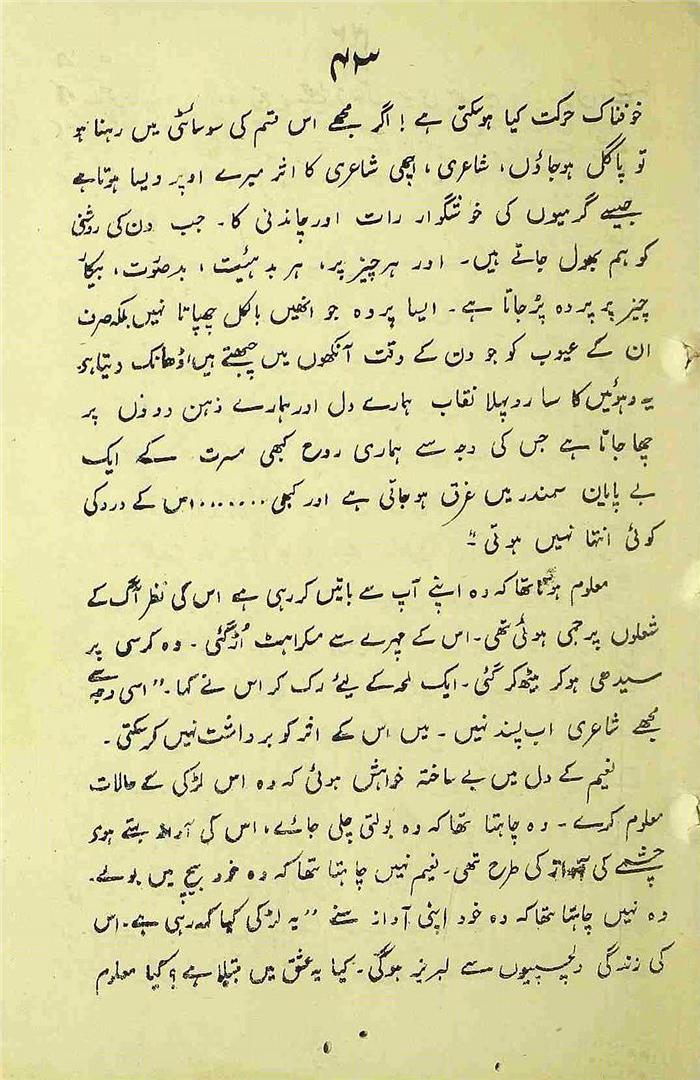 ۴۳
خوفناک حرکت کیا ہوسکتی ہے ! اگر مجھے اس قسم کی سوسائٹی میں رہنا ہو
تو پاگل ہوجاؤں، شاعری، اچھی شاعری کا اثر میرے اوپر ویسا ہوتا ہے
جیسے گرمیوں کی خوشگوار رات اور چاندنی کا۔ جب دن کی روشنی
کو ہم بھول جاتے ہیں۔ اور ہر چیز پر، ہر بد ہئیت، بد صوَرت، بیکار
چیز پر پردہ پڑ جاتا ہے۔ ایسا پردہ جو انھیں بالکل چھپاتا نہیں بلکہ صرف
ان کے عیوب کو جو دن کے وقت آنکھوں میں چبھتے ہیں، ڈھانک دیتا ہو
یہ دھوئیں کا سا روپہلا نقاب ہمارے دل اور ہمارے ذہن دونوں پر
چھا جاتا ہے جس کی وجہ سے ہماری روح کبھی مسرت کے ایک
بے پایان سمندر میں غرق ہوجاتی ہے اور کبھی ....... اس کے درد کی
کوئی انتہا نہیں ہوتی "
معلوم ہوتا تھا کہ وہ اپنے آپ سے باتیں کر رہی ہے اس کی نظر آگ کے
شعلوں پر جمی ہوئی تھی۔ اس کے چہرے سے مسکراہٹ اُڑ گئی۔ وہ کرسی پر
سیدھی ہوکر بیٹھ کر گئی۔ ایک لمحہ کے لیئے رک کر اس نے کہا۔ " اسی وجہ سے
مجھے شاعری اب پسند نہیں۔ میں اس کے اثر کو برداشت نہیں کرسکتی۔
نعیم کے دل میں بے ساختہ خواہش ہوئی کہ وہ اس لڑکی کے حالات
معلوم کرے۔ وہ چاہتا تھا کہ وہ بولتی چلی جائے، اس کی آواز بہتے ہوئے
چشمے کی آواز کی طرح تھی۔ نعیم نہیں چاہتا تھا کہ وہ خود بیچ میں بولے۔
وہ نہیں چاہتا تھا کہ وہ خود اپنی آواز سنے " یہ لڑکی کیا کہہ رہی ہے۔ اس
کی زندگی دلچسپیوں سے لبریز ہوگی۔ کیا یہ عشق میں مبتلا ہے؟ کیا معلوم